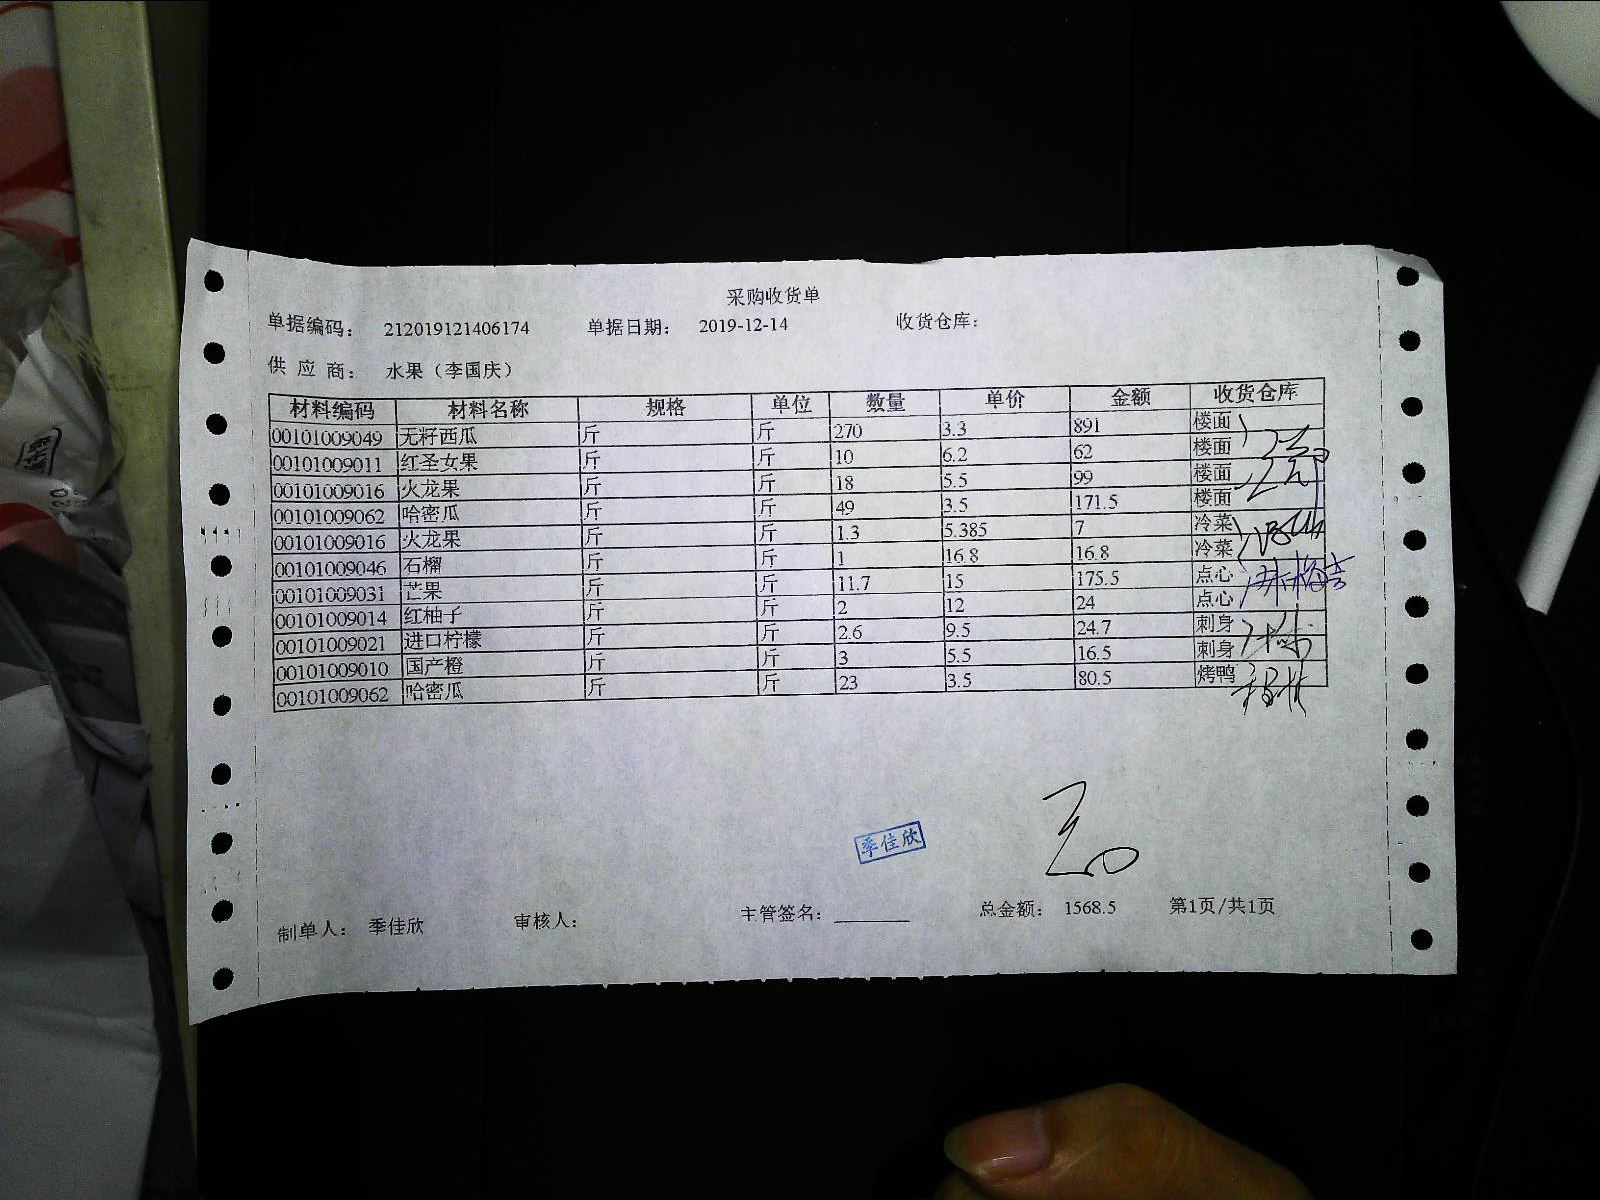 采购收货单
单据编码： 212019121406174 单据日期： 2019-12-14 收货仓库：
供 应 商： 水果（李国庆）
材料编码 材料名称 规格 单位 数量 单价 金额 收货仓库
00101009049 无籽西瓜 斤 斤 270 3.3 891 楼面
00101009011 红圣女果 斤 斤 10 6.2 62 楼面
00101009016 火龙果 斤 斤 18 5.5 99 楼面
00101009062 哈密瓜 斤 斤 49 3.5 171.5 楼面
00101009016 火龙果 斤 斤 1.3 5.385 7 冷菜
00101009046 石榴 斤 斤 1 16.8 16.8 冷菜
00101009031 芒果 斤 斤 11.7 15 175.5 点心
00101009014 红柚子 斤 斤 2 12 24 点心
00101009021 进口柠檬 斤 斤 2.6 9.5 24.7 刺身
00101009010 国产橙 斤 斤 3 5.5 16.5 刺身
00101009062 哈密瓜 斤 斤 23 3.5 80.5 烤鸭
季佳欣
制单人： 季佳欣 审核人： 主管签名： 总金额： 1568.5 第1页/共1页